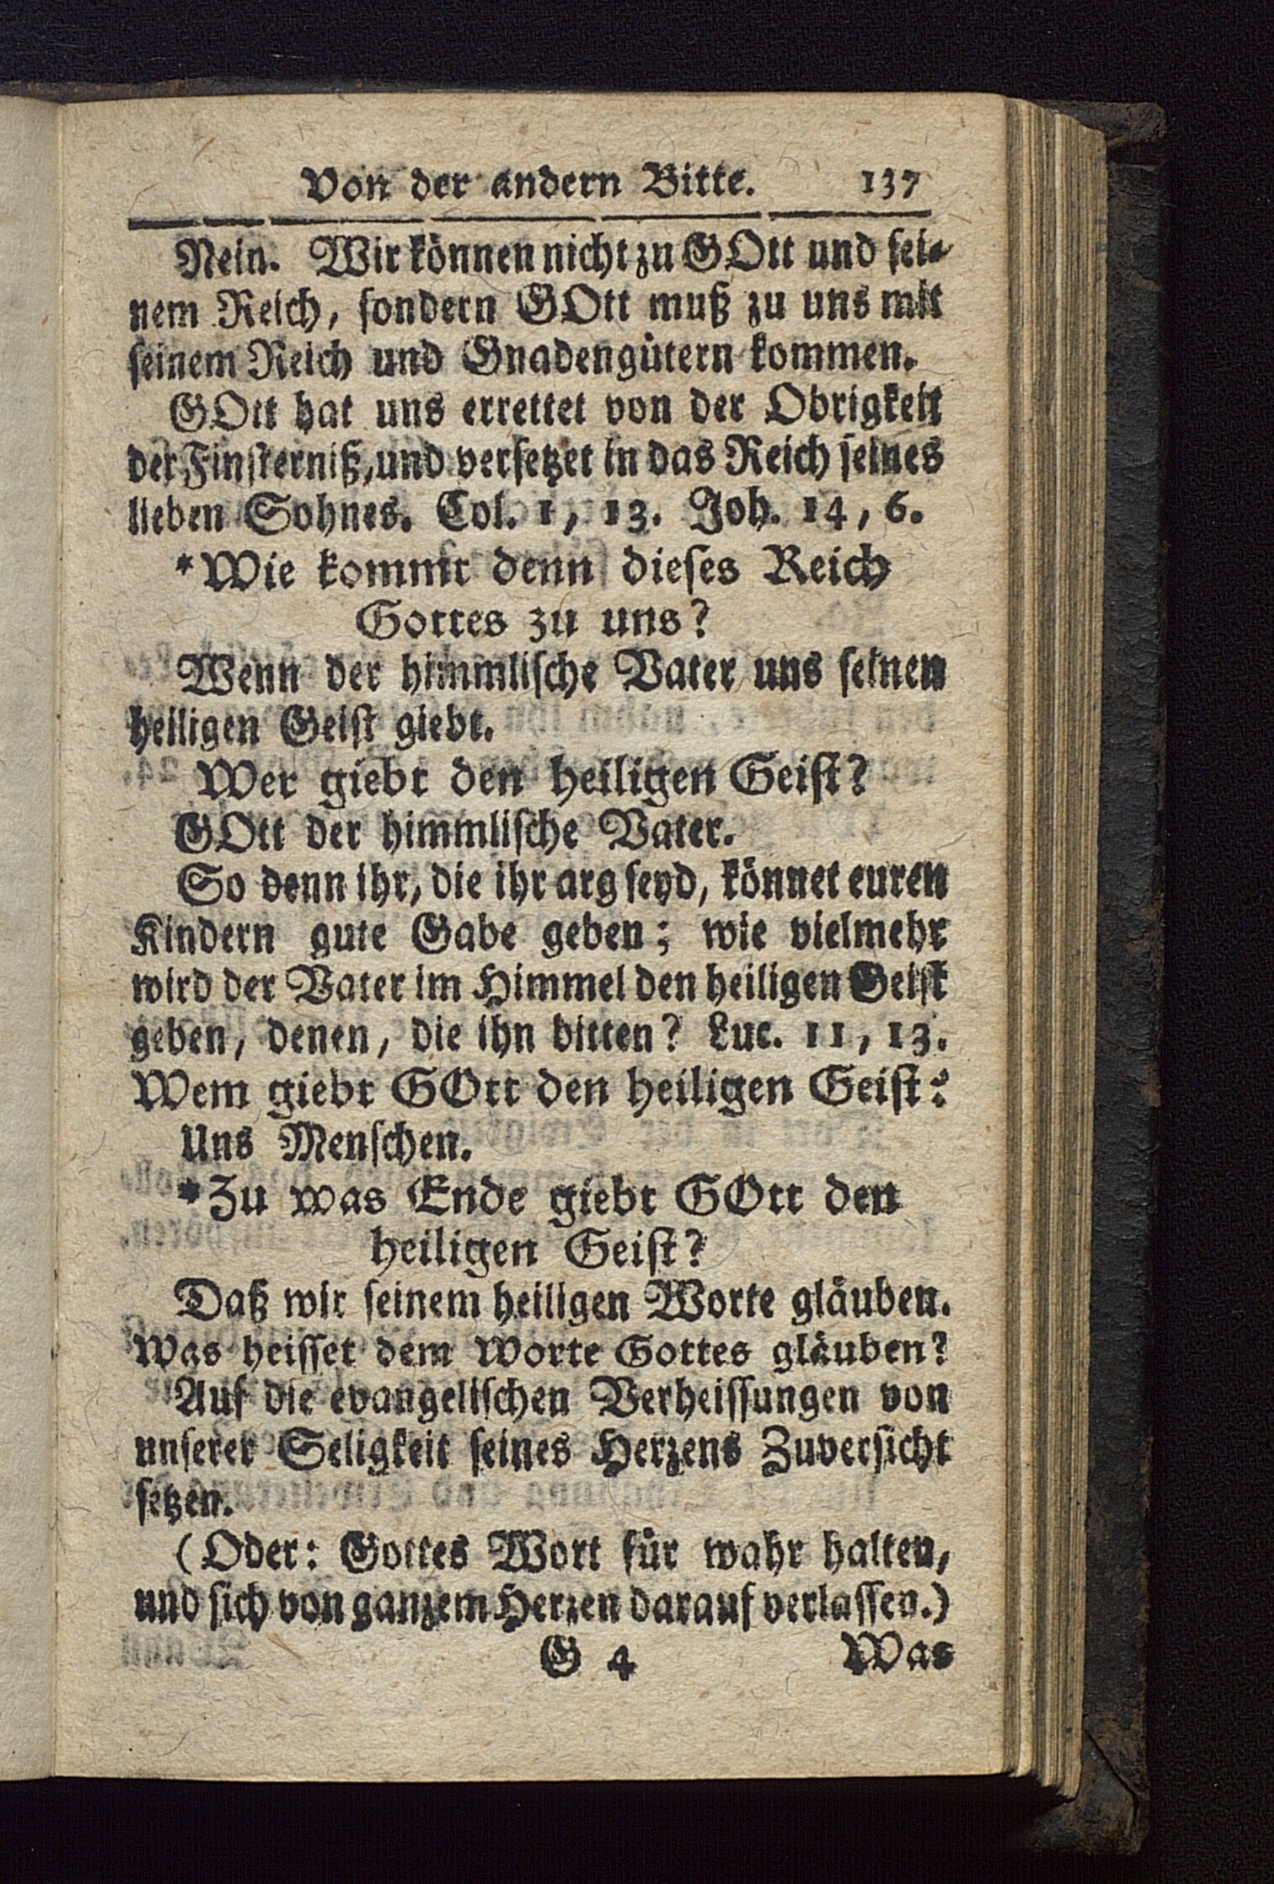 Von der andern Bitte. 137
Nein. Wir können nicht zu GOtt und sei-
nem Reich, sondern GOtt muß zu uns mit
seinem Reich und Gnadengütern kommen.
GOtt hat uns errettet von der Obrigkeit
der Finsterniß, und versetzet in das Reich seines
lieben Sohnes. Col. 1, 13. Joh. 14, 6.
*Wie kommt denn dieses Reich
Gottes zu uns?
Wenn der himmlische Vater uns seinen
heiligen Geist giebt.
Wer giebt den heiligen Geist?
GOtt der himmlische Vater.
So denn ihr, die ihr arg seyd, könnet euren
Kindern gute Gabe geben; wie vielmehr
wird der Vater im Himmel den heiligen Geist
geben, denen, die ihn bitten? Luc. 11, 13.
Wem giebt GOtt den heiligen Geist?
Uns Menschen.
*Zu was Ende giebt GOtt den
heiligen Geist?
Daß wir seinem heiligen Worte gläuben.
Was heisset dem Worte Gottes gläuben?
Auf die evangelischen Verheissungen von
unserer Seligkeit seines Herzens Zuversicht
setzen.
(Oder: Gottes Wort für wahr halten,
und sich von ganzem Herzen darauf verlassen.)
G 4 Was